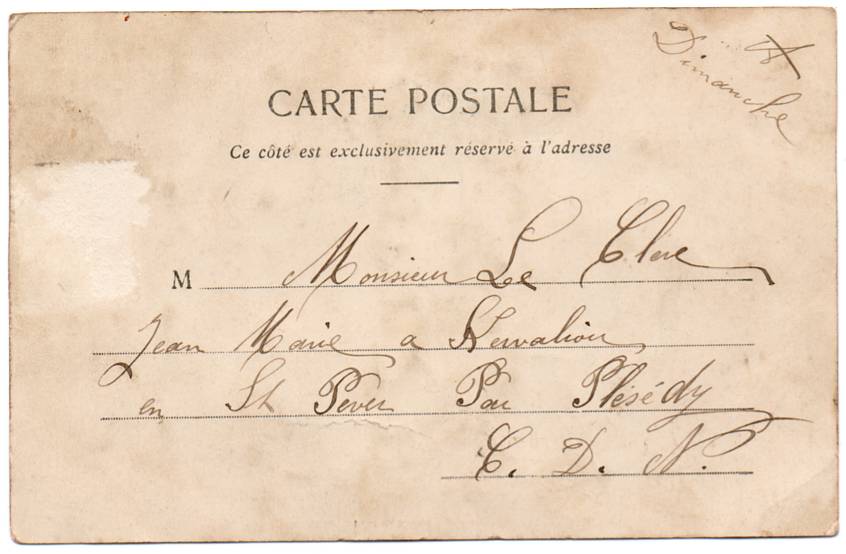 Dimanche
CARTE POSTALE
Ce côté est exclusivement réservé à l'adresse
M Monsieur Le Clerc
Jean Marie a Kervalion
en St Pever Par Plésédy
C. D. N.